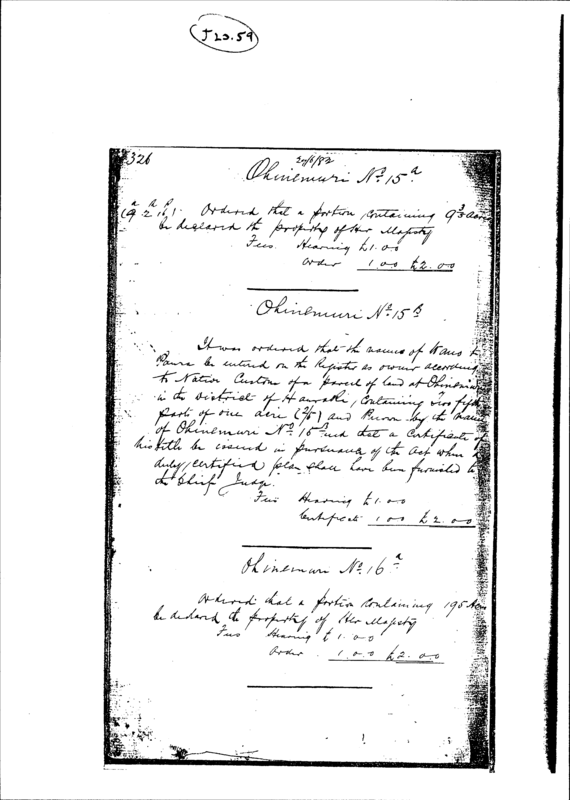 J 20.59
326
20/6/82
Ohinemuri No. 15a
(9a. 2. 16). Ordered that a portion containing 9¾ acres
be declared the property of Her Majesty
Fees Hearing £1.00
Order 1.00 £2.00
Ohinemuri No. 15B
It was ordered that the names of
be entered on the Register as owner according
to Native Custom of a parcel of land at Ohinemuri
in the District of Hauraki, containing Two fifth
parts of one acre (2/5) and known by the name
of Ohinemuri No. 15B and that a Certificate of
his title be issued in pursuance of the Act when a
duly certified plan shall have been furnished to
the Chief Judge.
Fees Hearing £1.00
Certificate 1 00 £2.00
Ohinemuri No. 16a
Ordered that a portion containing 195 Acres
be declared the property of Her Majesty
Fees Hearing £1.00
Order 1.0.0 £2.00